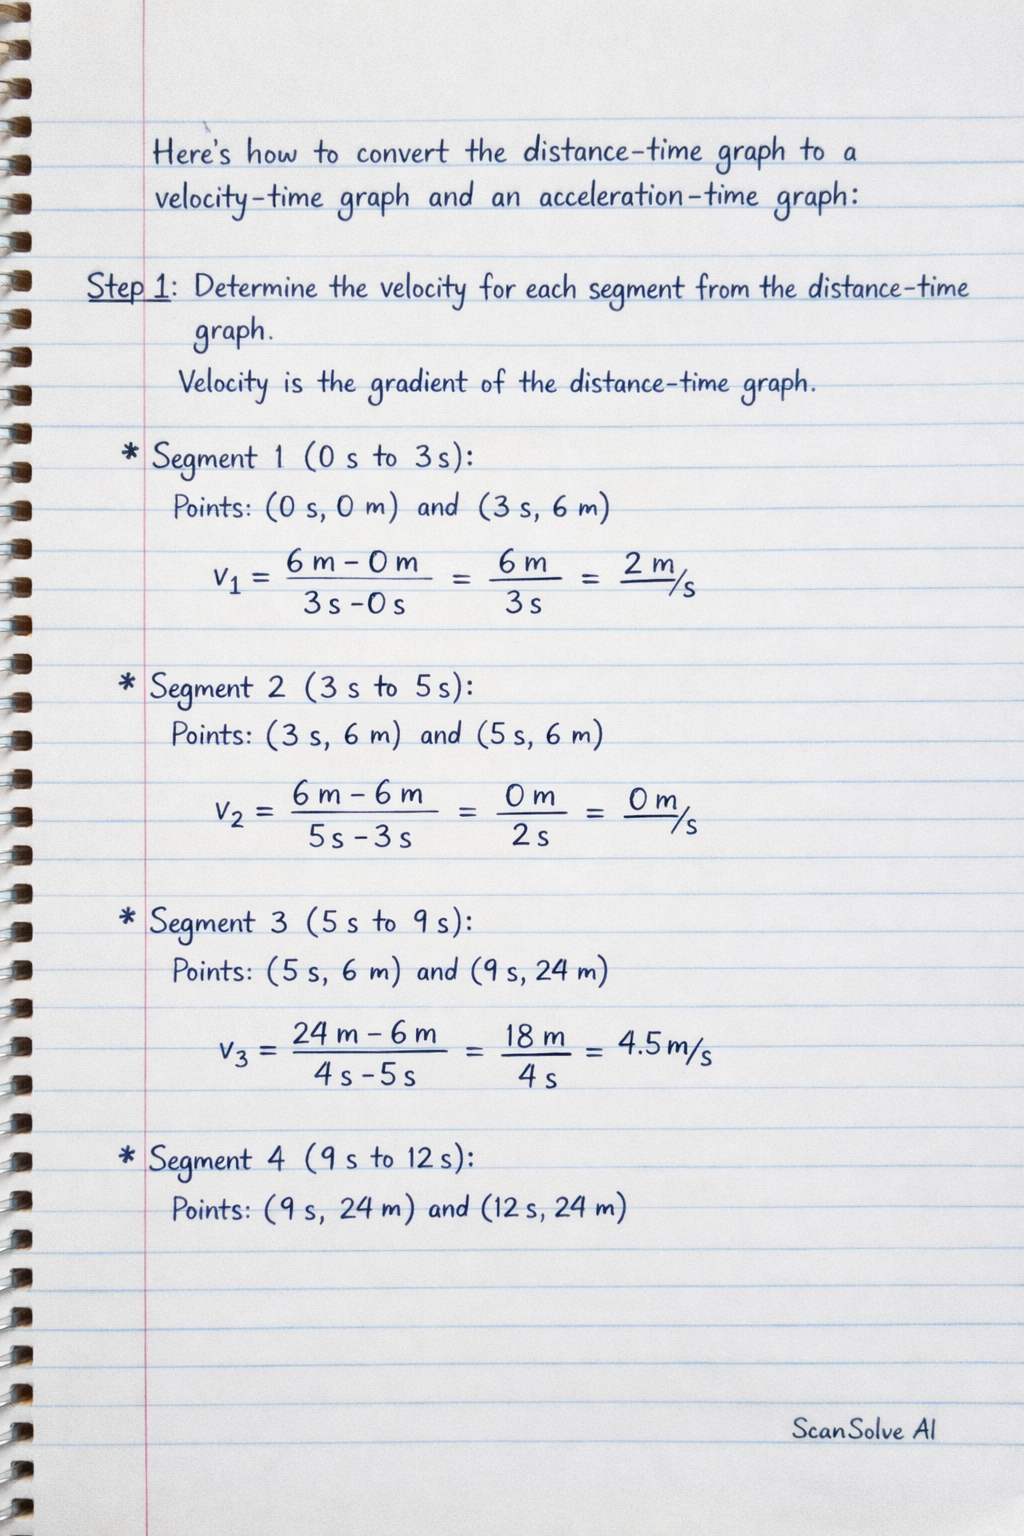 Here's how to convert the distance-time graph to a
velocity-time graph and an acceleration-time graph:
Step 1: Determine the velocity for each segment from the distance-time
graph.
Velocity is the gradient of the distance-time graph.
* Segment 1 (0 s to 3 s):
Points: (0 s, 0 m) and (3 s, 6 m)
v₁ = (6 m - 0 m)/(3 s - 0 s) = 6 m/3 s = 2 m/s
* Segment 2 (3 s to 5 s):
Points: (3 s, 6 m) and (5 s, 6 m)
v₂ = (6 m - 6 m)/(5 s - 3 s) = 0 m/2 s = 0 m/s
* Segment 3 (5 s to 9 s):
Points: (5 s, 6 m) and (9 s, 24 m)
v₃ = (24 m - 6 m)/(4 s - 5 s) = 18 m/4 s = 4.5 m/s
* Segment 4 (9 s to 12 s):
Points: (9 s, 24 m) and (12 s, 24 m)
ScanSolve AI